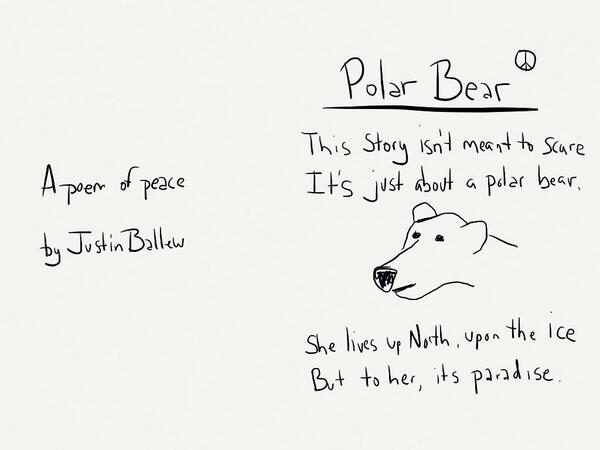 A poem of peace
by Justin Ballew
Polar Bear
This Story isn't meant to scare
It's just about a polar bear.
She lives up North, upon the ice
But to her, its paradise.